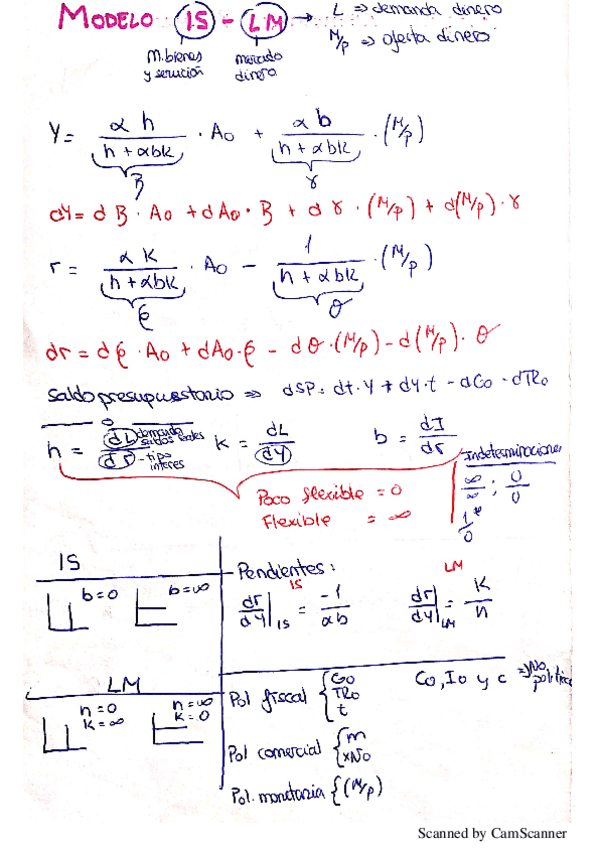 MODELO IS - LM → L ⇒ demanda dinero
M/p ⇒ oferta dinero
M.bienes y servicios
mercado dinero
Y = αh / (h + αbk) · Ao + αb / (h + αbk) · (M/p)
β γ
dY = dβ · Ao + dAo · β + dγ · (M/p) + d(M/p) · γ
r = αk / (h + αbk) · Ao − 1 / (h + αbk) · (M/p)
ϕ θ
dr = dϕ · Ao + dAo · ϕ − dθ · (M/p) − d(M/p) · θ
saldo presupuestario ⇒ dSP = dt · Y + dY · t − dGo − dTRo
h = dL / dr demanda saldos reales - tipo interes
k = dL / dY
b = dI / dr
Indeterminaciones
∞/∞ ; 0/0
1/0
Poco flexible = 0
Flexible = ∞
IS
b=0 b=∞
Pendientes:
IS
dr/dY |IS = -1/αb
LM
dr/dY |LM = k/h
LM
h=0 k=∞
h=∞ k=0
Pol fiscal { Go TRo t
Co, Io y c ⇒ No politica
Pol comercial { m XNo
Pol. monetaria { (M/p)
Scanned by CamScanner